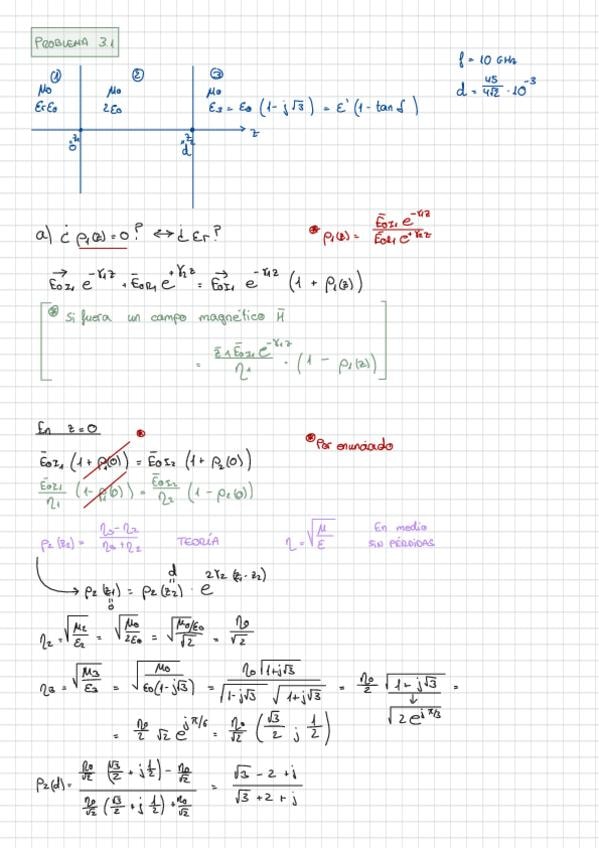 PROBLEMA 3.1
① ② ③
f = 10 GHz
μ₀ μ₀ μ₀
d = 45/(4√2) · 10⁻³
εrε₀ 2ε₀ ε₃ = ε₀ (1-j√3) = ε' (1-tan δ)
z
z₁ z₂
0 d
a) ¿ρ₁(z) = 0? ↔ ¿εr?
* ρ₁(z) = Ē₀R₁ e^(-γ₁z) / Ē₀R₁ e^(+γ₁z)
E₀I₁ e^(-γ₁z) + Ē₀R₁ e^(+γ₁z) = E₀I₁ e^(-γ₁z) (1 + ρ₁(z))
* Si fuera un campo magnético H̄
= ẑ×Ē₀I₁ e^(-γ₁z) / η₁ · (1 - ρ₁(z))
En z=0
*
* Por enunciado
Ē₀I₁ (1 + ρ₁(0)) = Ē₀I₂ (1 + ρ₂(0))
Ē₀I₁/η₁ (1-ρ₁(0)) = Ē₀I₂/η₂ (1 - ρ₂(0))
ρ₂(z₂) = (η₃-η₂)/(η₃+η₂) TEORÍA η = √(μ/ε) En medio
SIN PÉRDIDAS
d
ρ₂(z₁) = ρ₂(z₂) · e^(2γ₂(z₁-z₂))
0
η₂ = √(μ₂/ε₂) = √(μ₀/2ε₀) = √(μ₀/ε₀)/√2 = η₀/√2
η₃ = √(μ₃/ε₃) = √(μ₀/(ε₀(1-j√3))) = η₀√(1+j√3) / (√(1-j√3) √(1+j√3)) = η₀/2 √(1+j√3) =
√(2e^(jπ/3))
= η₀/2 √2 e^(jπ/6) = η₀/√2 (√3/2 j 1/2)
ρ₂(d) = (η₀/√2 (√3/2 + j 1/2) - η₀/√2) / (η₀/√2 (√3/2 + j 1/2) + η₀/√2) = (√3 - 2 + j) / (√3 + 2 + j)